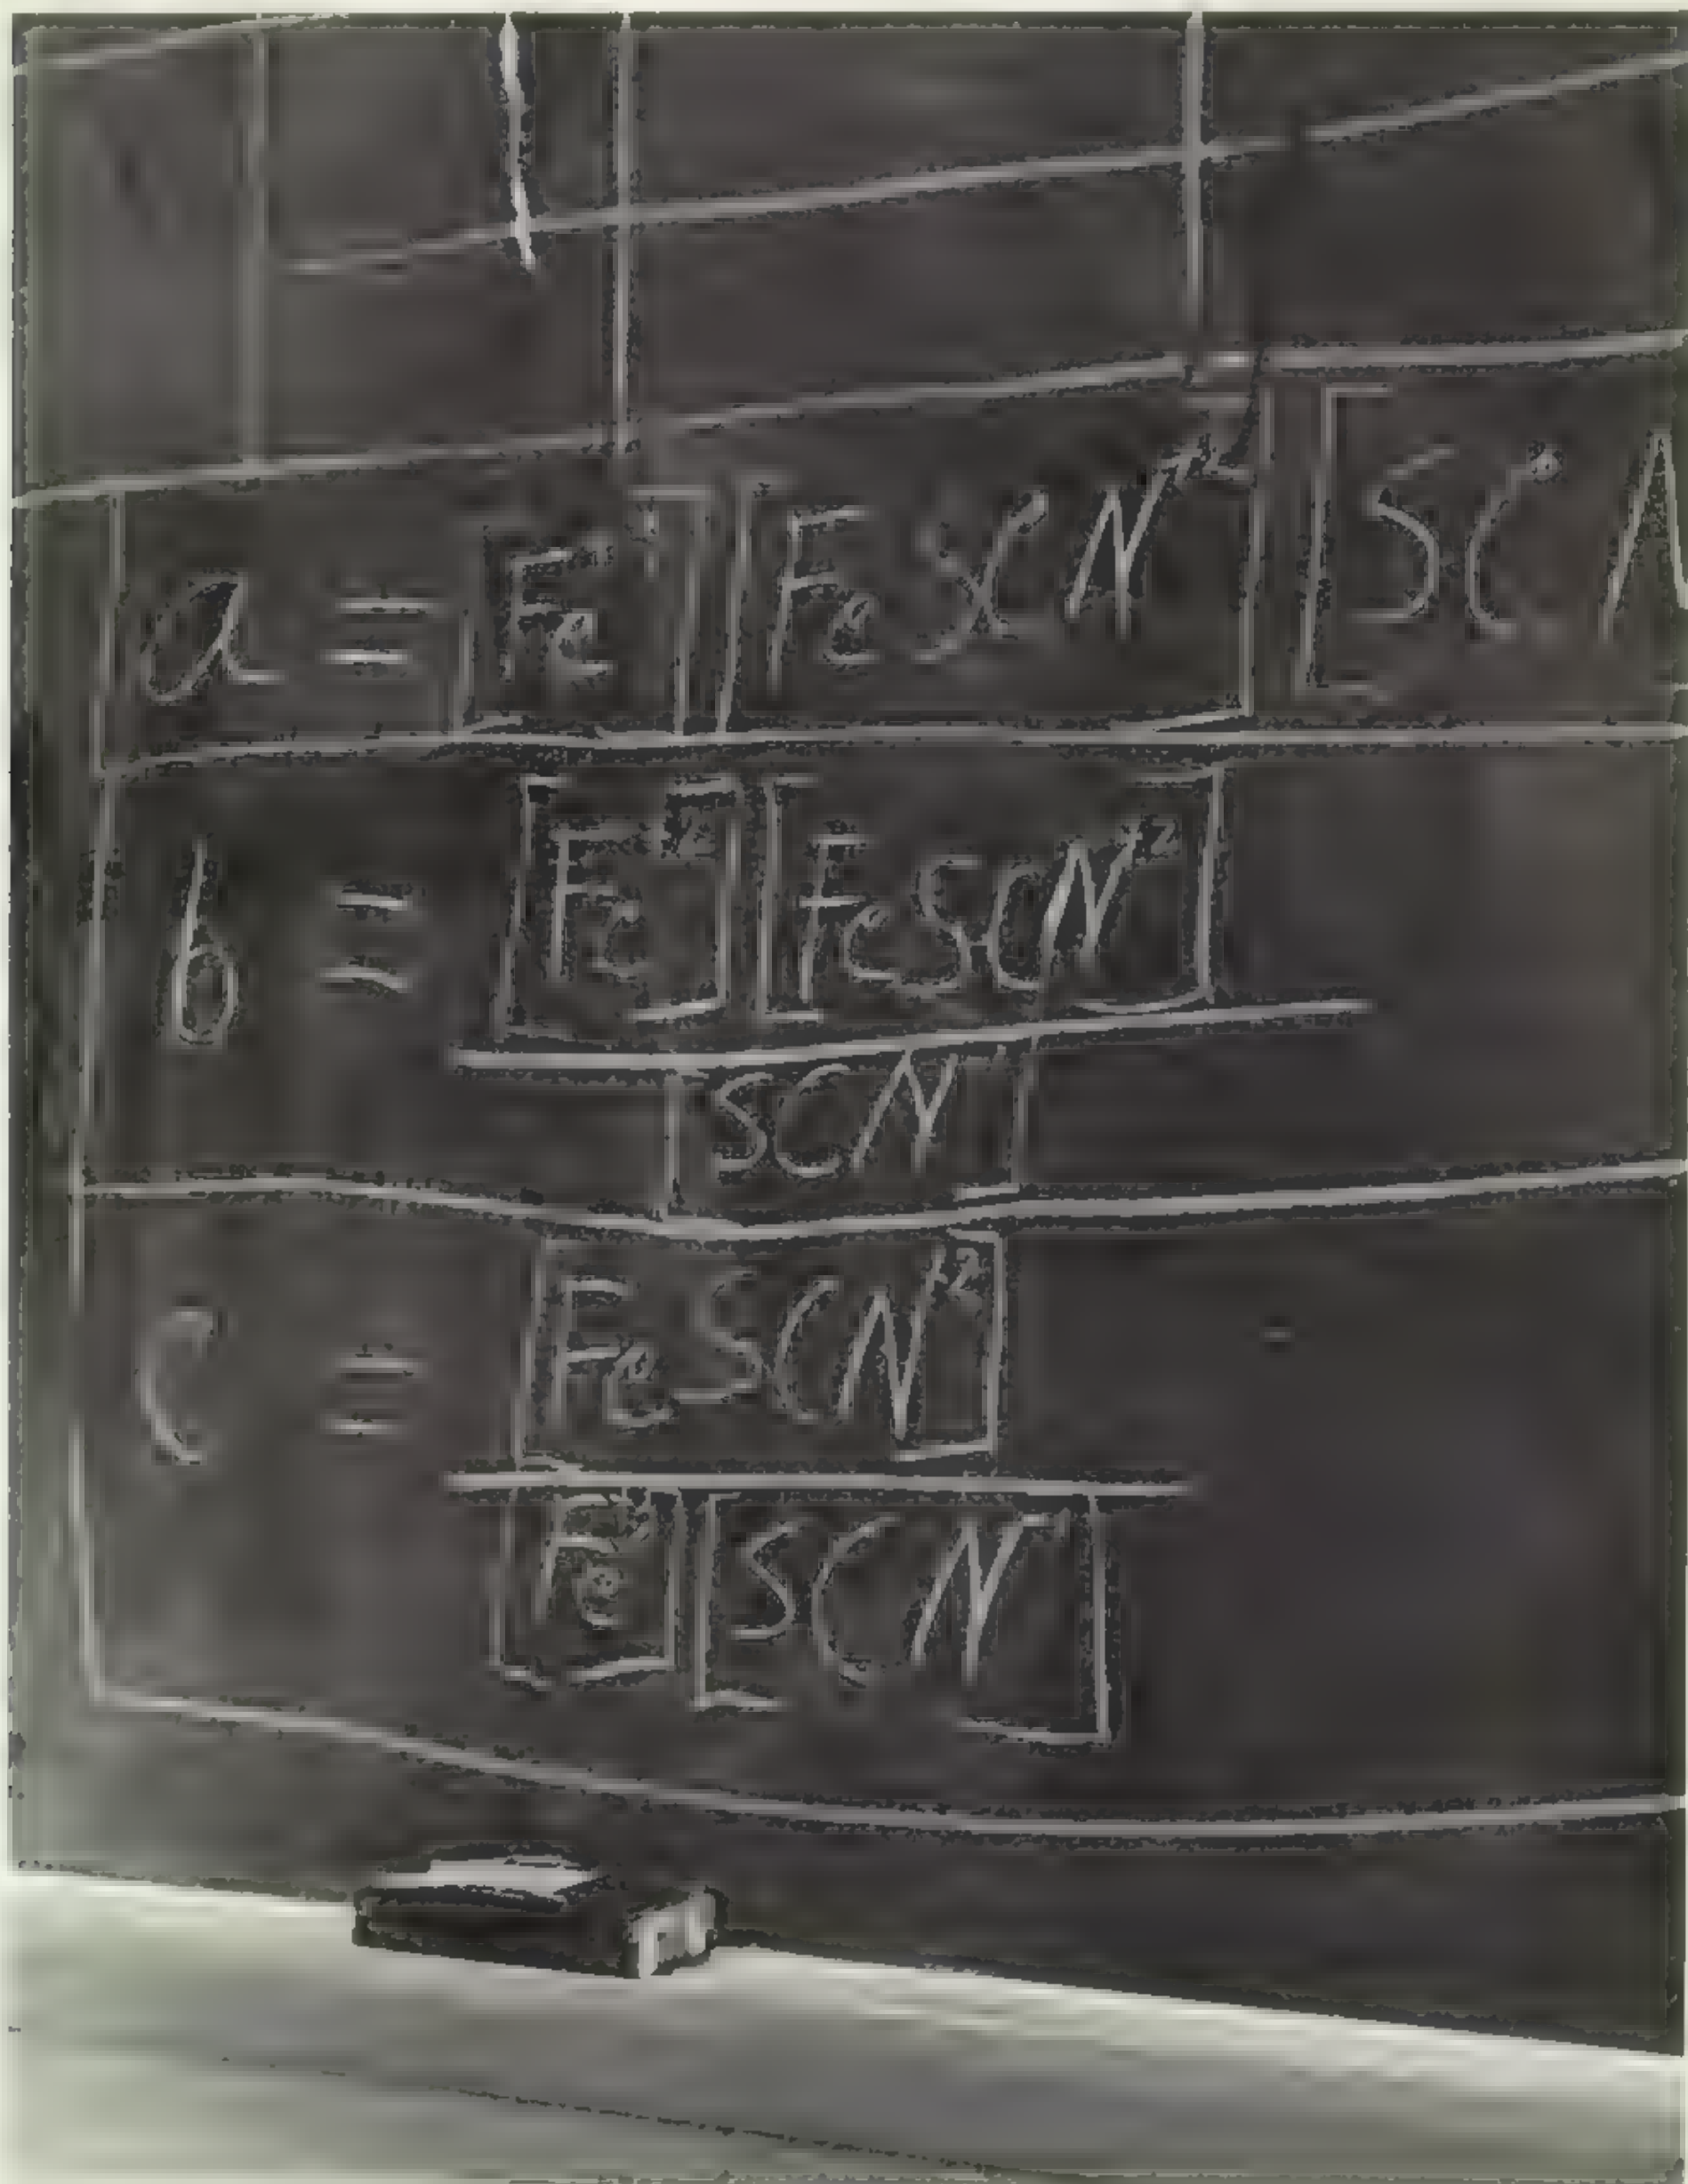 a = [Fe][FeSCN][SCN
b = [Fe][FeSCN]
[SCN]
c = [FeSCN]
[Fe][SCN]